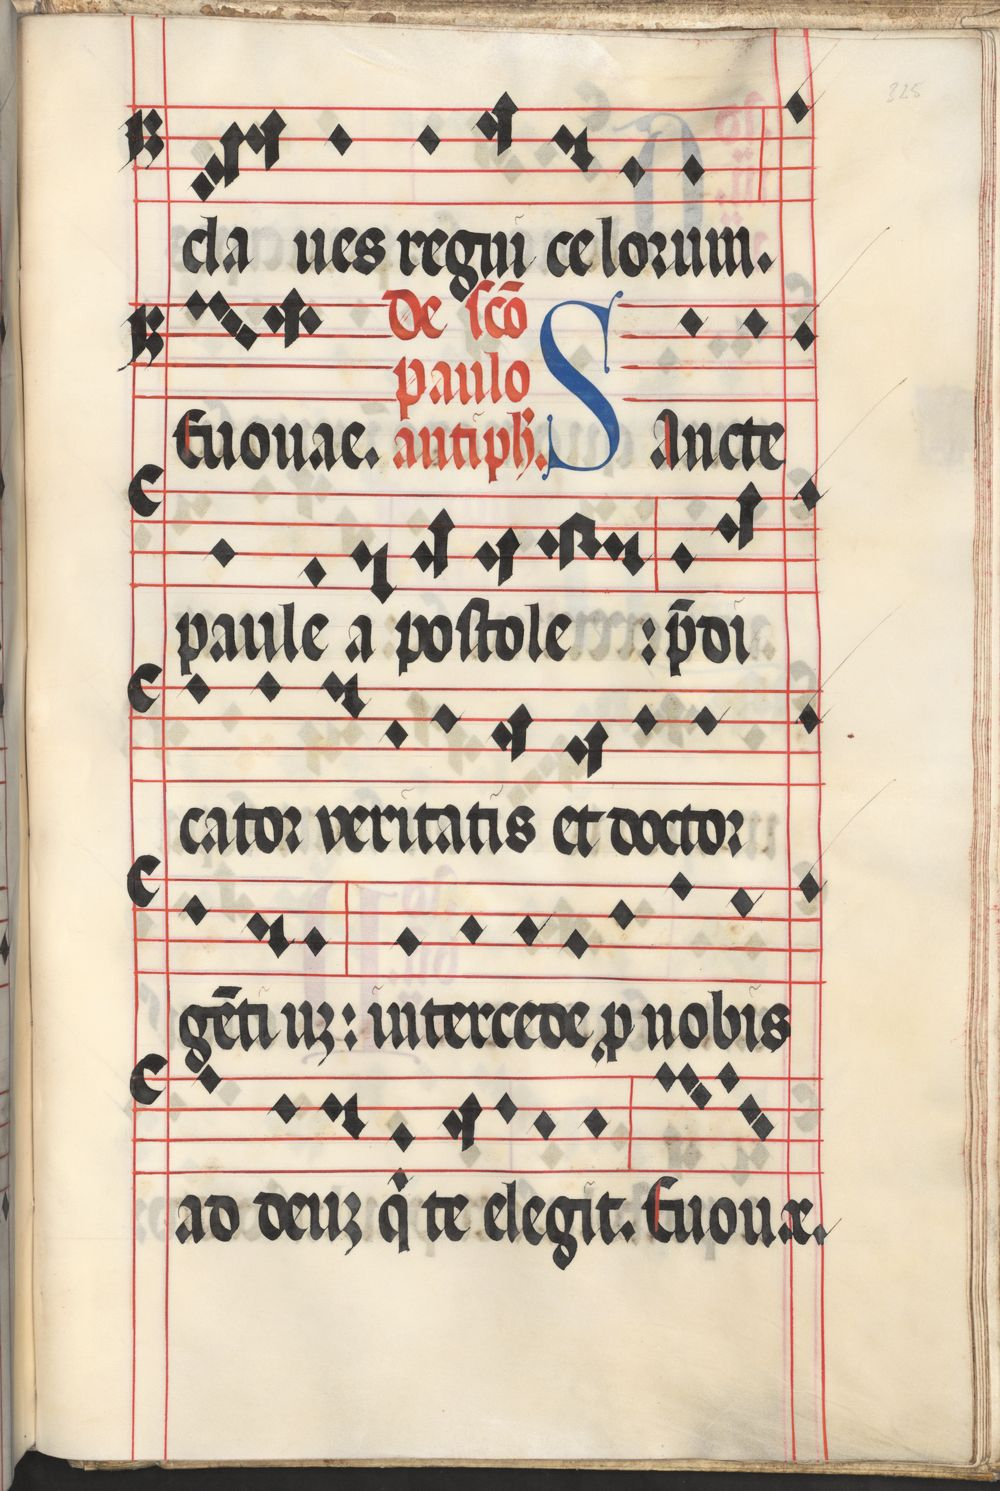 325
claues regni celorum.
De scō
paulo
Euouae. antiph̄. Sancte
paule apostole : p̄di
cator veritatis et doctor
gētiuʒ: intercede ꝓ nobis
ad deuʒ qͥ te elegit. Euouæ.